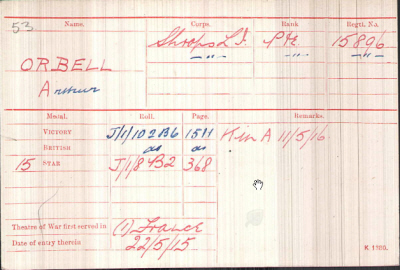 53.
Name. Corps. Rank Regtl. No.
Shrops L.I. Pte. 15896
ORBELL — " — — " — — " —
Arthur
Medal. Roll. Page. Remarks.
VICTORY J/1/102B6 1511 K in A 11/5/16
BRITISH do do
15 STAR J/1/8 B2 368
Theatre of War first served in (1) France
Date of entry therein 22/5/15
K 1380.